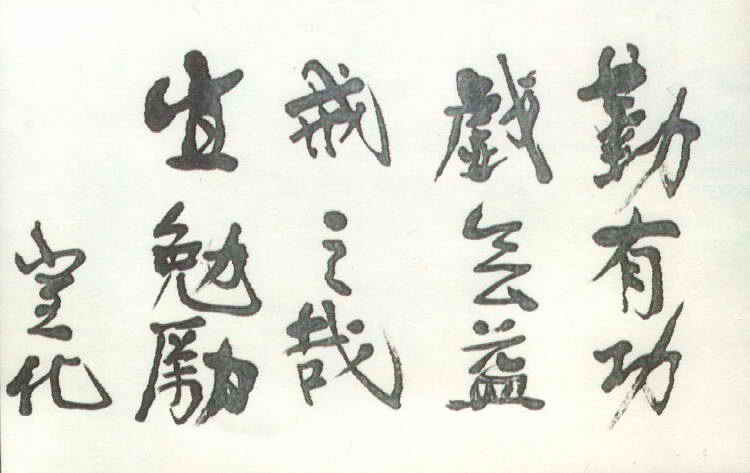 勤有功
戲无益
戒之哉
宜勉勵
宣化